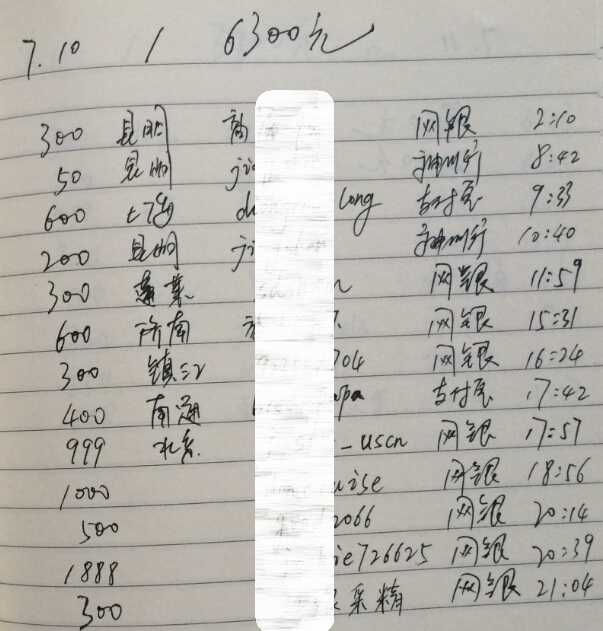 7.10 1 6300元
300 昆明 网银 2:10
50 昆明 神州行 8:42
600 上海 long 支付宝 9:33
200 昆明 神州行 10:40
300 蓬莱 网银 11:59
600 济南 网银 15:31
300 镇江 704 网银 16:24
400 南通 pa 支付宝 17:42
999 北京 _uscn 网银 17:57
1000 uise 网银 18:56
500 2066 网银 20:14
1888 ie726625 网银 20:39
300 采精 网银 21:04